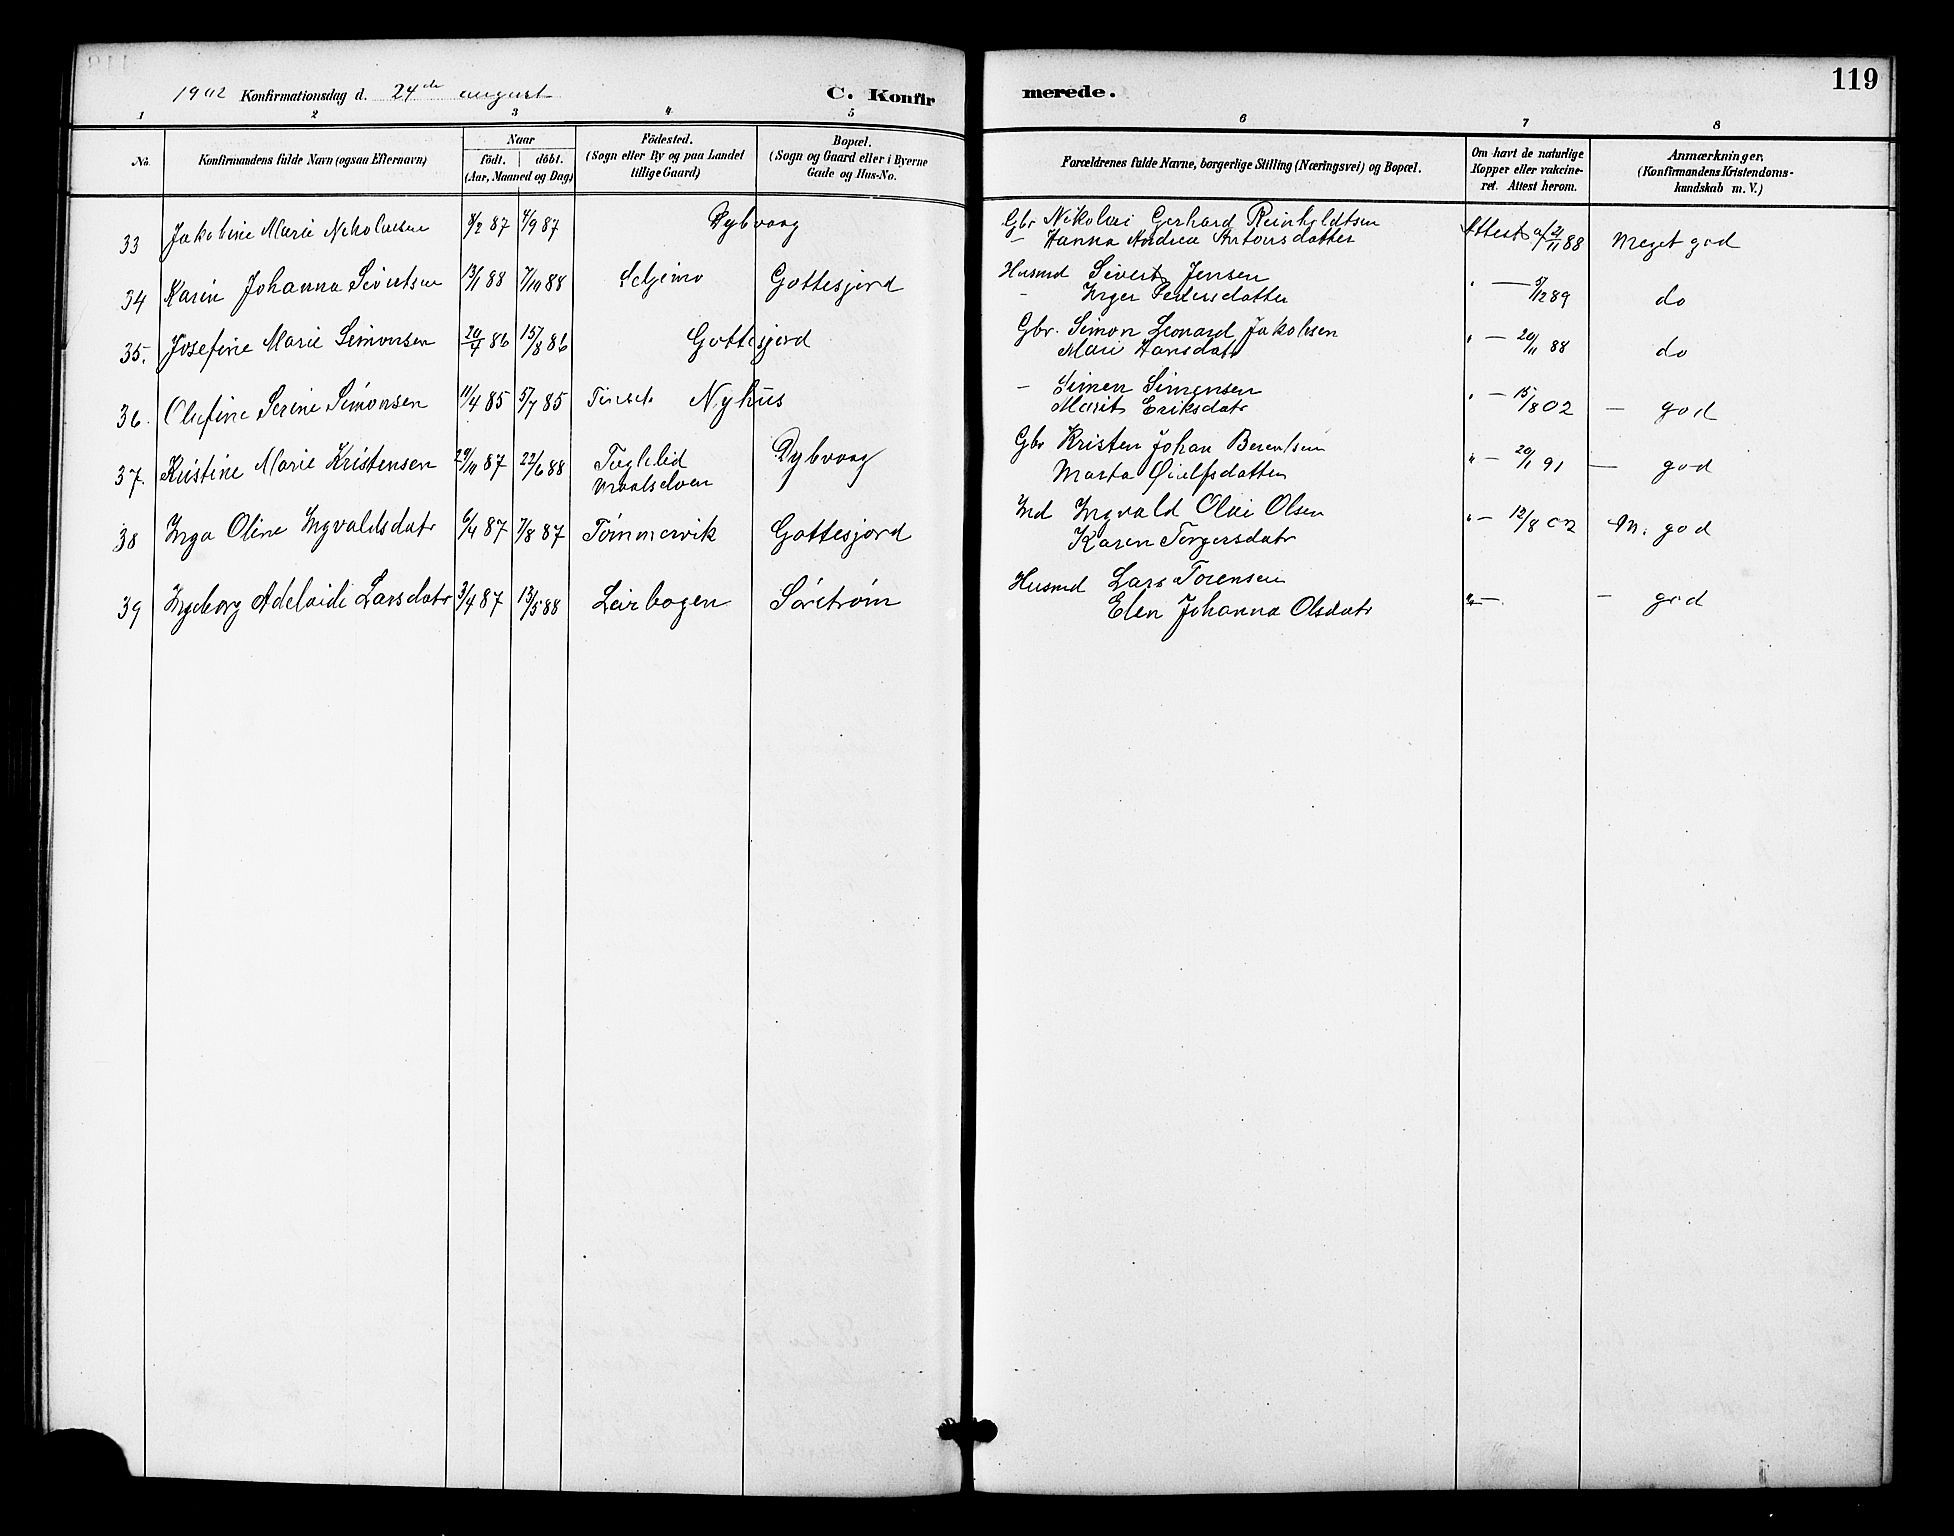 119
1902 Konfirmationsdag d. 24de august C. Konfirmerede.
1 2 3 4 5 6 7 8
No. Konfirmandens fulde Navn (ogsaa Efternavn) Naar födt. döbt. (Aar, Maaned og Dag) Födested. (Sogn eller By og paa Landet tillige Gaard) Bopæl. (Sogn og Gaard eller i Byerne Gade og Hus-No. Forældrenes fulde Navne, borgerlige Stilling (Næringsvei) og Bopæl. Om havt de naturlige Kopper eller vakcineret. Attest herom. Anmærkninger, (Konfirmandens Kristendomskundskab m. V.)
33 Jakobine Marie Nikolaisen 8/2 87 4/9 87 Dybvaag Gbr Nikolai Gerhard Reinholdtsen Attest af 21/11 88 Meget god
— Hanna Andrea Antonsdatter
34 Karin Johanna Sivertsen 13/1 88 7/10 88 Seljemo Gottesjord Husmd Sivert Jensen " — 5/12 89 do
— Inger Pedersdatter
35. Josefine Marie Simonsen 20/7 86 15/8 86 Gottesjord Gbr. Simon Leonard Jakobsen " — 20/11 88 do
Mari Hansdatr
36. Olufine Serine Simonsen 11/4 85 5/7 85 Tinset Nyhus — Simen Simensen " — 15/8 02 — god
Marit Eriksdatr
37. Kristine Marie Kristensen 29/10 87 22/6 88 Fuglelid Dybvaag Gbr Kristen Johan Berentsen " — 20/1 91 — god
Maalselven Marta Øiulfsdatter
38 Inga Oline Ingvaldsdatr 6/4 87 7/8 87 Tømmervik Gottesjord Ind Ingvald Olai Olsen " — 12/8 02 M. god
Karen Torgersdatr
39 Ingeborg Adelaide Larsdatr 3/4 87 13/5 88 Leirbogen Sørstrøm Husmd Lars Torensen " — — god
Elen Johanna Olsdatr